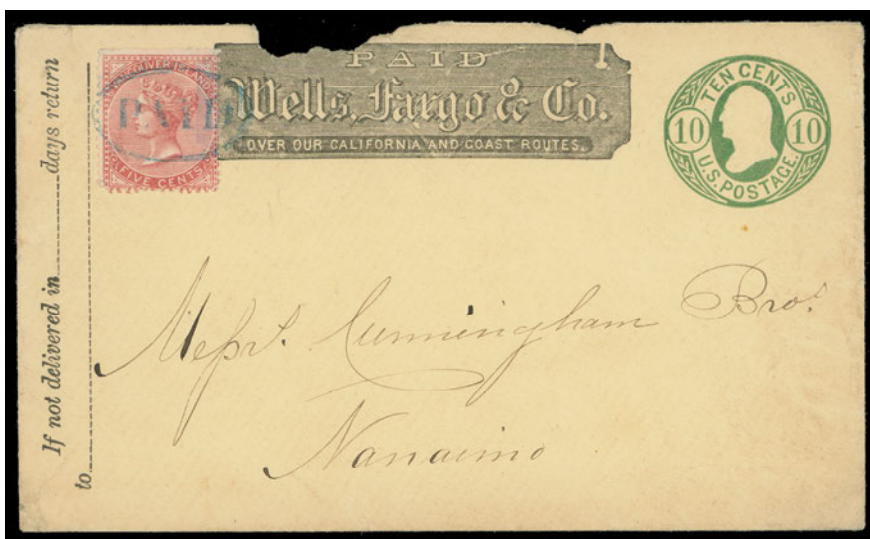 If not delivered in ........ days return
to
VANCOUVER ISLAND
PAID
FIVE CENTS
PAID
Wells, Fargo & Co.
OVER OUR CALIFORNIA AND COAST ROUTES.
TEN CENTS
10 10
U.S. POSTAGE.
Messrs. Cunningham Bros
Nanaimo